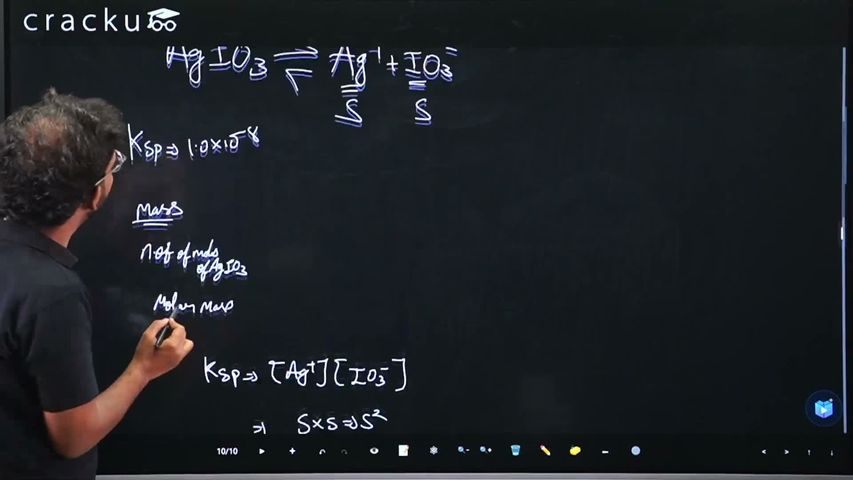 cracku
AgIO3 ⇌ Ag+ + IO3−
S S
Ksp ⇒ 1.0×10−8
Mass
n.of of mols
of AgIO3
Molar Mass
Ksp ⇒ [Ag+][IO3−]
⇒ S×S ⇒ S2
10/10